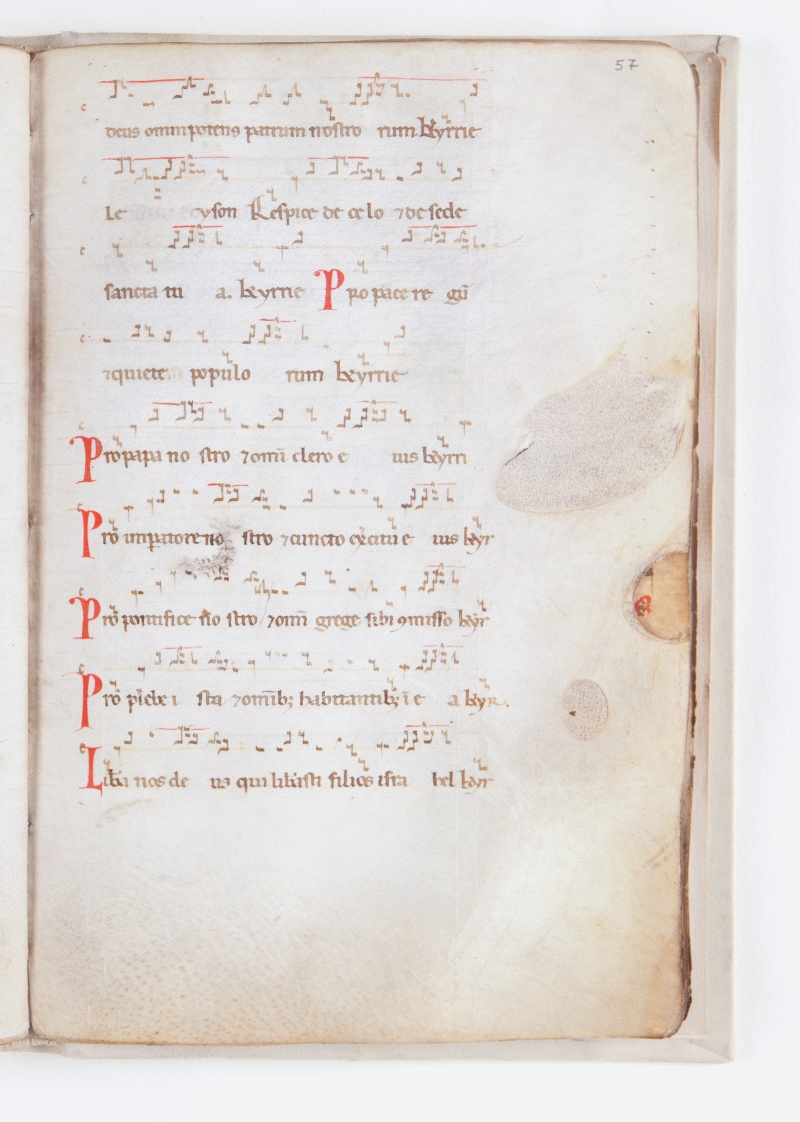 57
deus omnipotens patrum nostro rum kyrrie
Le yson Respice de celo ⁊ de sede
sancta tu a. kyrrie P pro pace re gū
⁊ quiete populo rum kyrrie
Pro papa no stro ⁊ omī clero e ius kyrri
Pro imperatore no stro ⁊ cuncto exercitu e ius kyr
Pro pontifice no stro ⁊ omī grege sibi ꝯmisso kyr
Pro plebe i sta ⁊ omībꝫ habitantibꝫ ī e a kyr.
Liba nos de us qui libasti filios isra hel kyr